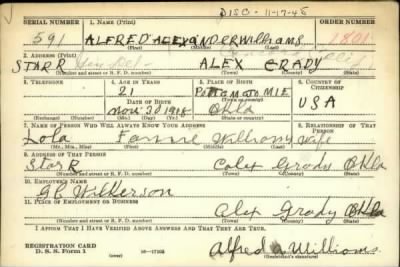 DISC-11-17-45
SERIAL NUMBER 1. NAME (Print)
591 ALFRED ALEXANDER Williams 1801
(First) (Middle) (Last)
2. ADDRESS (Print)
STARR ALEX GRADY
(Number and street or R. F. D. number) (Town) (County) (State)
3. TELEPHONE 4. AGE IN YEARS 5. PLACE OF BIRTH 6. COUNTRY OF CITIZENSHIP
21 POTTAMATOMIE
DATE OF BIRTH (Town or county) USA
Nov. 20 1918 Okla
(Exchange) (No.) (Mo.) (Day) (Yr.) (State or country)
7. NAME OF PERSON WHO WILL ALWAYS KNOW YOUR ADDRESS 8. RELATIONSHIP OF THAT PERSON
Lola Fannie Williams Wife
(Mr., Mrs., Miss) (First) (Middle) (Last)
9. ADDRESS OF THAT PERSON
Star R Alex Grady Okla
(Number and street or R. F. D. number) (Town) (County) (State)
10. EMPLOYER'S NAME
Wilkerson
11. PLACE OF EMPLOYMENT OR BUSINESS
Alex Grady Okla
(Number and street or R. F. D. number) (Town) (County) (State)
I AFFIRM THAT I HAVE VERIFIED ABOVE ANSWERS AND THAT THEY ARE TRUE.
REGISTRATION CARD
D. S. S. Form 1 Alfred A Williams